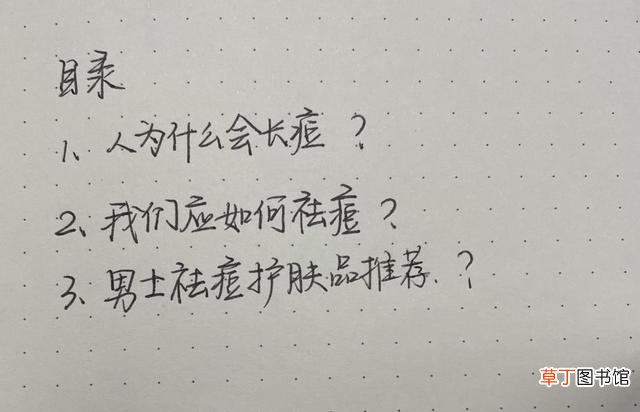 目录
1、人为什么会长痘？
2、我们应如何祛痘？
3、男士祛痘护肤品推荐.？
草丁图书馆